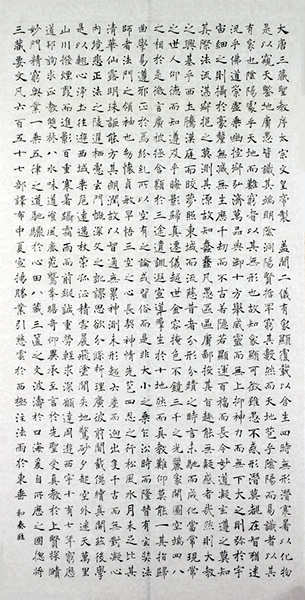 大唐三藏聖教序太宗文皇帝製蓋聞二儀有象顯覆載以含生四時無形潛寒暑以化物
是以窺天鑒地庸愚皆識其端明陰洞陽賢哲罕窮其數然而天地苞乎陰陽而易識者以其
有象也陰陽處乎天地而難窮者以其無形也故知象顯可徵雖愚不惑形潛莫覩在智猶迷
況乎佛道崇虛乘幽控寂弘濟萬品典御十方舉威靈而無上抑神力而無下大之則彌於宇
宙細之則攝於毫釐無滅無生歷千劫而不古若隱若顯運百福而長今妙道凝玄遵之莫知
其際法流湛寂挹之莫測其源故知蠢蠢凡愚區區庸鄙投其旨趣能無疑惑者哉然則大教
之興基乎西土騰漢庭而皎夢照東域而流慈昔者分形分跡之時言未馳而成化當常現常
之世人仰德而知遵及乎晦影歸真遷儀越世金容掩色不鏡三千之光麗象開圖空端四八
之相於是微言廣被拯含類於三途遺訓遐宣導群生於十地然而真教難仰莫能一其指歸
曲學易遵邪正於焉紛糾所以空有之論或習俗而是非大小之乘乍沿時而隆替有玄奘法
師者法門之領袖也幼懷貞敏早悟三空之心長契神情先苞四忍之行松風水月未足比其
清華仙露明珠詎能方其朗潤故以智通無累神測未形超六塵而迥出隻千古而無對凝心
內境悲正法之陵遲栖慮玄門慨深文之訛謬思欲分條析理廣彼前聞截偽續真開茲後學
是以翹心淨土往遊西域乘危遠邁杖策孤征積雪晨飛途間失地驚砂夕起空外迷天萬里
山川撥煙霞而進影百重寒暑躡霜雨而前蹤誠重勞輕求深願達周遊西宇十有七年窮歷
道邦詢求正教雙林八水味道餐風鹿苑鷲峯瞻奇仰異承至言於先聖受真教於上賢探賾
妙門精窮奧業一乘五律之道馳驟於心田八藏三篋之文波濤於口海爰自所歷之國總將
三藏要文凡六百五十七部譯布中夏宣揚勝業引慈雲於西極注法雨於東垂